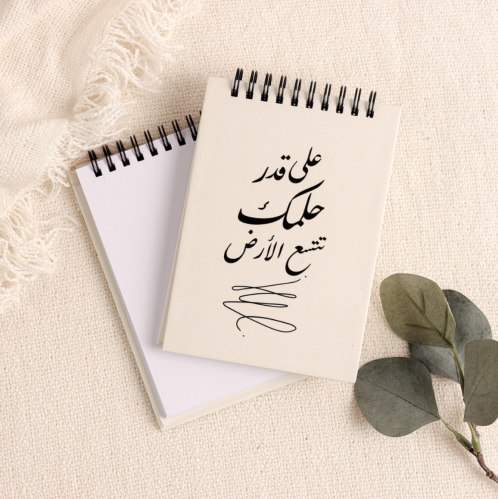 على قدر
حلمك
تتسع الأرض